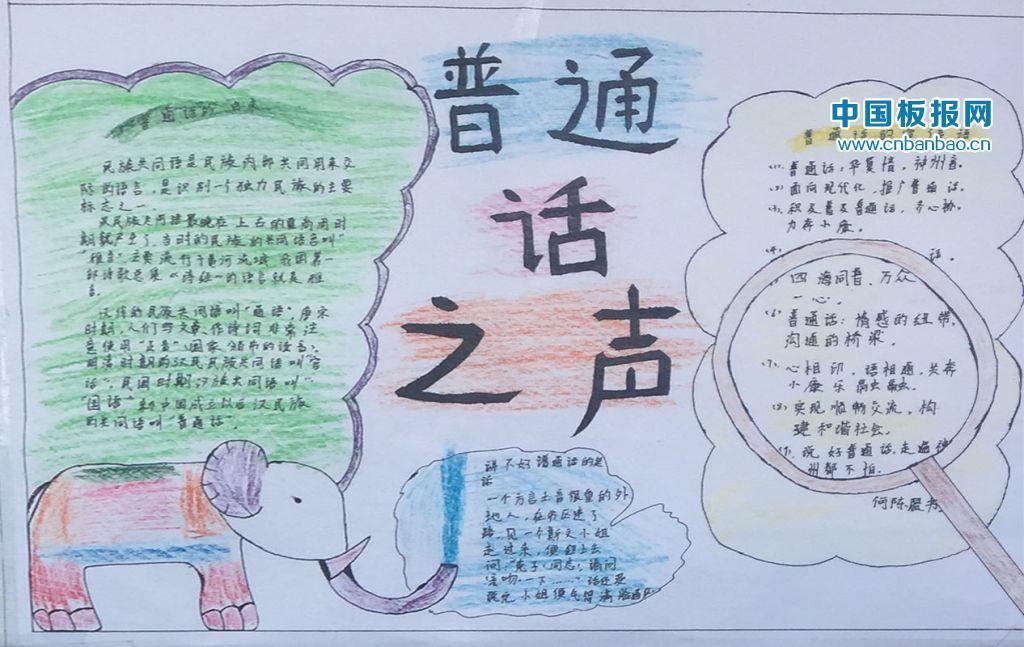 普通
话
之声
中国板报网
www.cnbanbao.cn
普通话的由来
民族共同语是民族内部共同用来交
际的语言，是识别一个独力民族的主要
标志之一。
汉民族共同语最晚在上古的夏商周时
期就产生了，当时的民族的共同语名叫"
"雅言"主要流行于黄河流域，我国第一
部诗歌总集《诗经》的语言就是雅
言。
汉代的民族共同语叫"通语"。唐宋
时期，人们写文章、作诗词非常注
意使用"正音"(国家颁布的读音)。
明清时期的汉民民族共同语叫"官
话"，民国时期汉族共同语叫"
"国语"新中国成立以后汉民族
的共同语叫普通话。
讲不好谱通话的笑
话
一个方言土音很重的外
地人，在市区迷了
路，见一个斯文小姐
走过来，便赶上去
问："
小姐便气得满脸通
普通话的宣传语
(1)、普通话，华夏情，神州音。
(2)面向现代化，推广普通话。
(3)、积及普及普通话，齐心协
力奔小康。
(4)
话。
四海同音，万众
一心。
(6)普通话：情感的纽带，
沟通的桥梁。
(7)、心相印，语相通，共奔
小康乐融融。
(8)实现顺畅交流，构
建和谐社会。
(9)、说好普通话，走遍神
州都不怕。